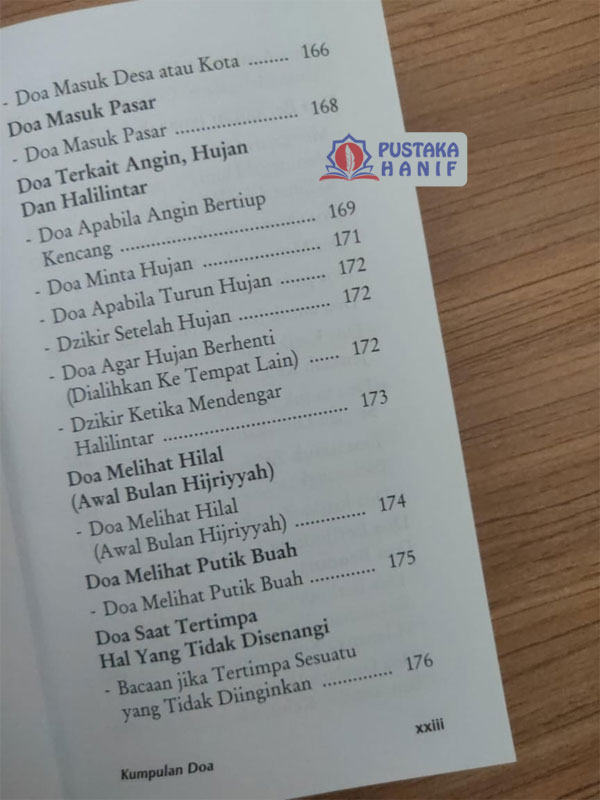 - Doa Masuk Desa atau Kota ........ 166
Doa Masuk Pasar
- Doa Masuk Pasar ........................ 168
Doa Terkait Angin, Hujan
Dan Halilintar
- Doa Apabila Angin Bertiup
Kencang ...................................... 169
- Doa Minta Hujan ...................... 171
- Doa Apabila Turun Hujan ........ 172
- Dzikir Setelah Hujan ................. 172
- Doa Agar Hujan Berhenti
(Dialihkan Ke Tempat Lain) ...... 172
- Dzikir Ketika Mendengar
Halilintar .................................... 173
Doa Melihat Hilal
(Awal Bulan Hijriyyah)
- Doa Melihat Hilal
(Awal Bulan Hijriyyah) .............. 174
Doa Melihat Putik Buah
- Doa Melihat Putik Buah ............. 175
Doa Saat Tertimpa
Hal Yang Tidak Disenangi
- Bacaan jika Tertimpa Sesuatu
yang Tidak Diinginkan .............. 176
xxiii
Kumpulan Doa
PUSTAKA
HANIF